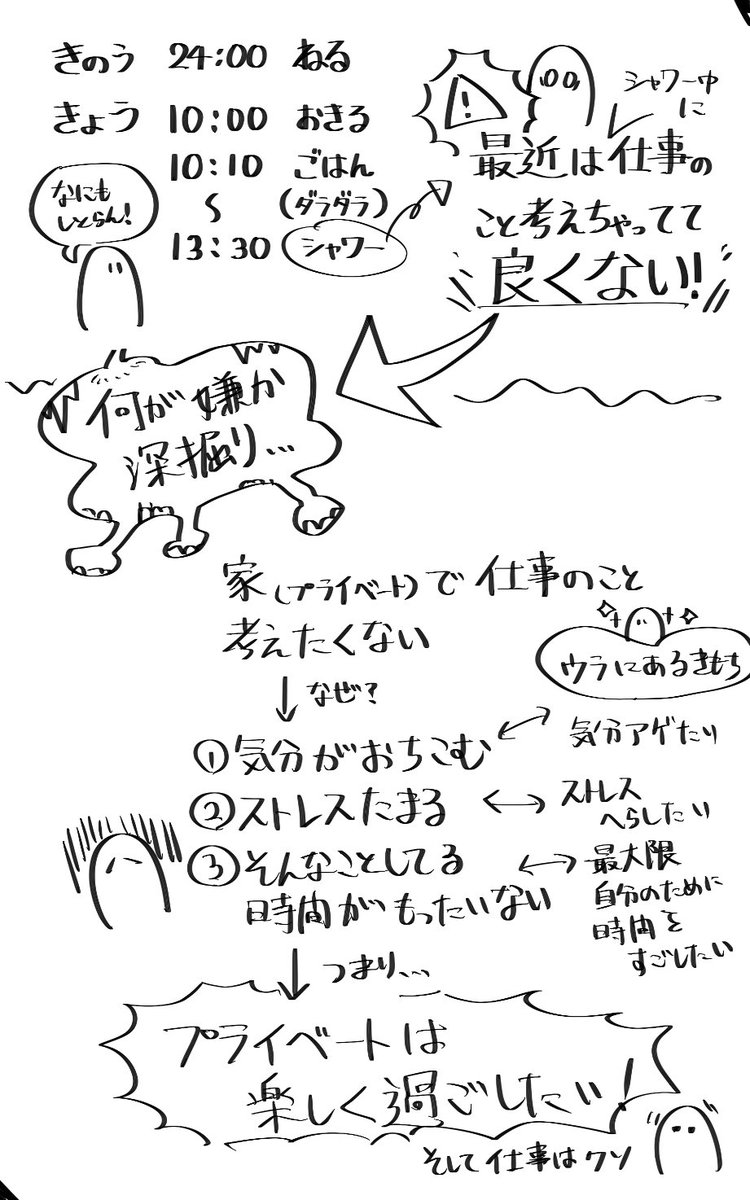 きのう 24:00 ねる
きょう 10:00 おきる
10:10 ごはん
〜 (ダラダラ)
13:30 シャワー
なにも
しとらん!
!
シャワー中
に
最近は仕事の
こと考えちゃってて
良くない!
何が嫌か
深掘り...
家(プライベート)で仕事のこと
考えたくない
↓なぜ?
ウラにあるきもち
①気分がおちこむ ↔ 気分アゲたり
②ストレスたまる ↔ ストレス
へらしたい
③そんなことしてる
時間がもったいない
↔ 最大限
自分のために
時間を
すごしたい
↓つまり...
プライベートは
楽しく過ごしたい!
そして仕事はクソ